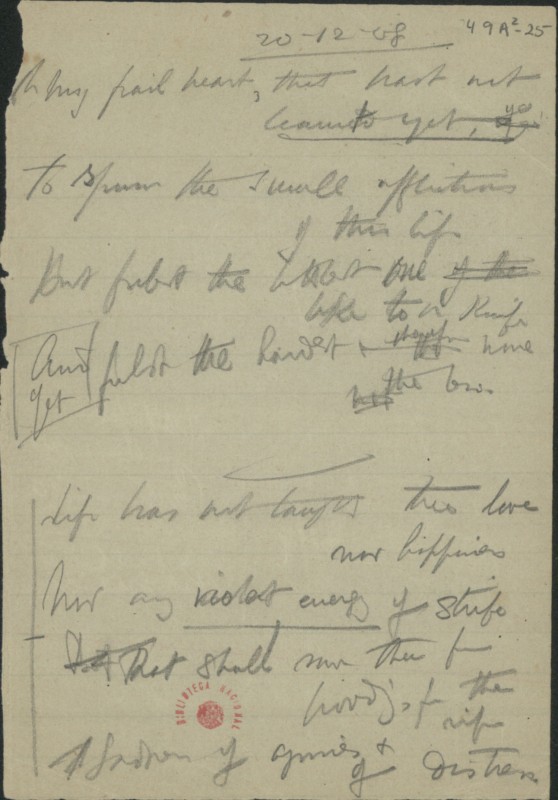 20-12-08
49A²-25
Oh my frail heart, that hast not
learnt yet,
To spurn the small afflictions
of this life
But feelest the one of the
like to a knife
And yet feelst the hardest none
the less
Life has not taught thee love
nor happiness
Nor any violent energy of strife
That shall thee for
for the
of agonies & of distress
BIBLIOTECA NACIONAL